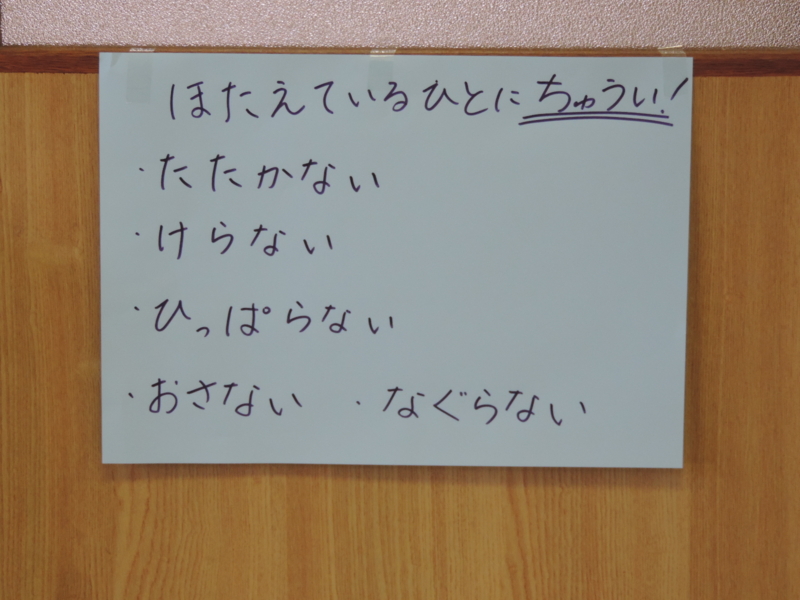 ほたえているひとにちゅうい!
・たたかない
・けらない
・ひっぱらない
・おさない ・なぐらない